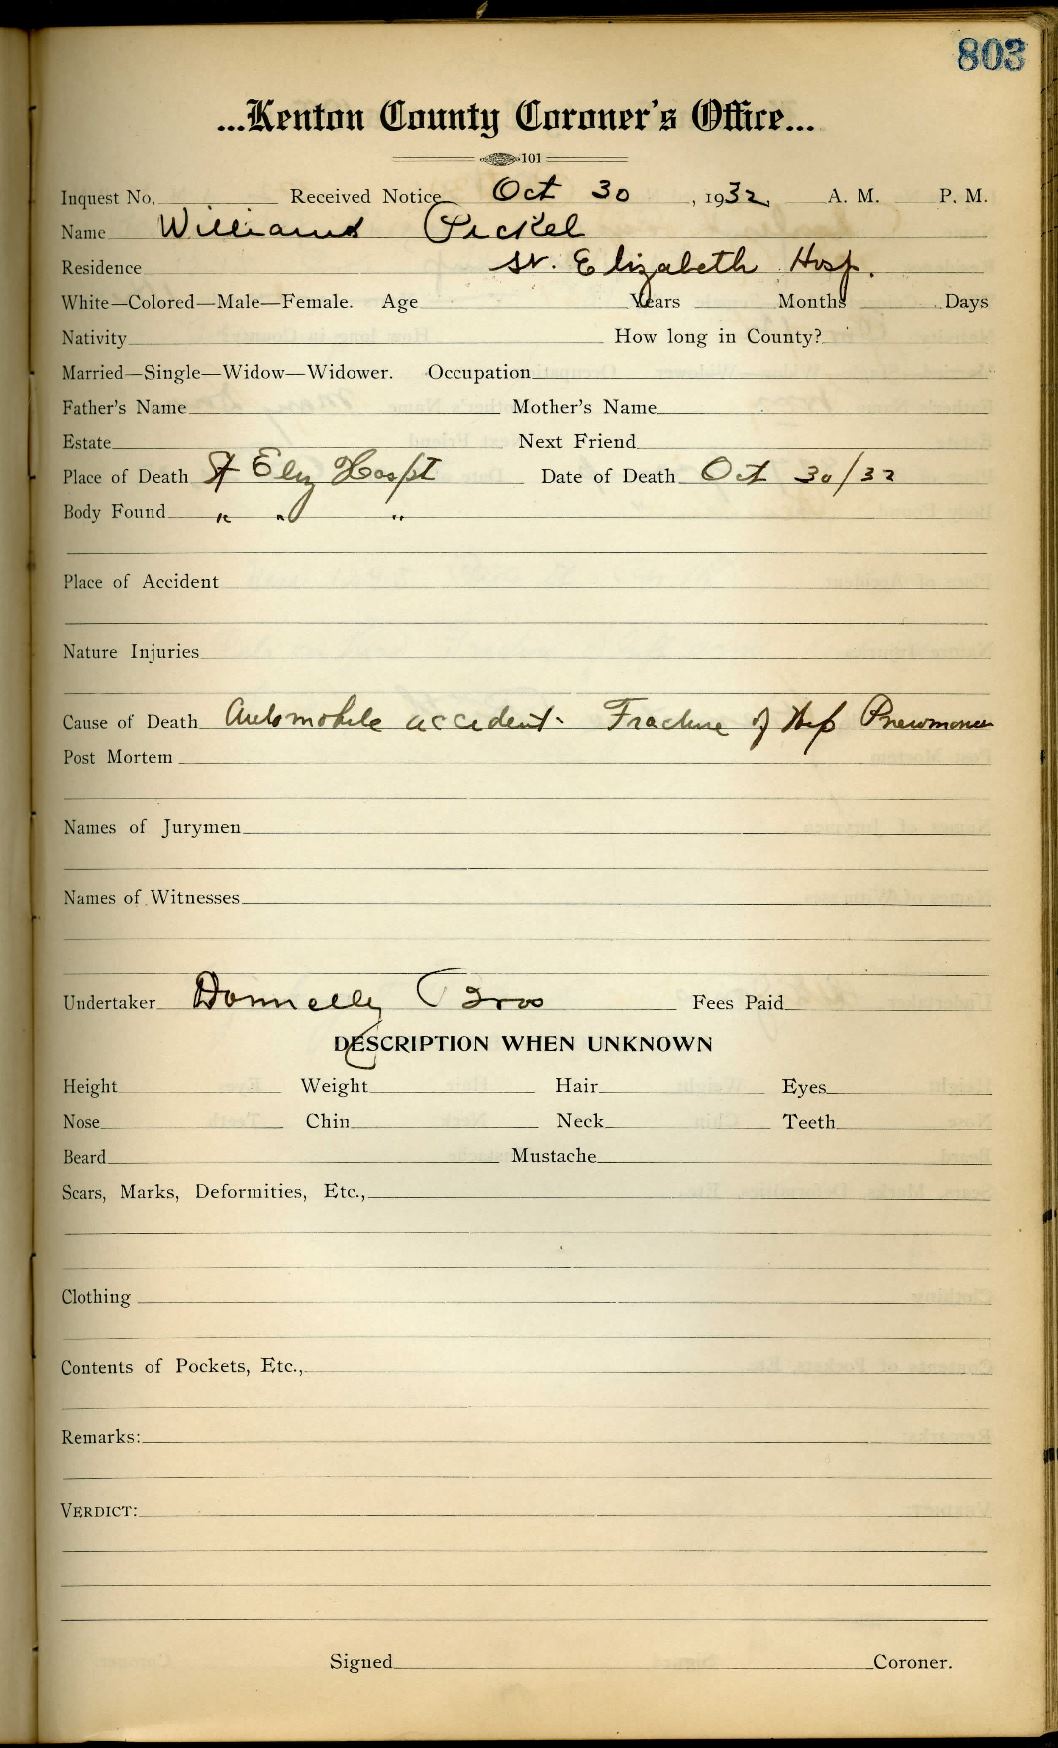 803
...Kenton County Coroner's Office...
101
Inquest No. Received Notice Oct 30, 1932, A. M. P. M.
Name William Pickel
Residence St. Elizabeth Hosp.
White—Colored—Male—Female. Age Years Months Days
Nativity How long in County?
Married—Single—Widow—Widower. Occupation
Father's Name Mother's Name
Estate Next Friend
Place of Death St Eliz Hospt Date of Death Oct 30/32
Body Found " " "
Place of Accident
Nature Injuries
Cause of Death Automobile accident - Fracture of Hip Pneumonia
Post Mortem
Names of Jurymen
Names of Witnesses
Undertaker Donnelly Bros Fees Paid
DESCRIPTION WHEN UNKNOWN
Height Weight Hair Eyes
Nose Chin Neck Teeth
Beard Mustache
Scars, Marks, Deformities, Etc.,
Clothing
Contents of Pockets, Etc.,
Remarks:
VERDICT:
Signed Coroner.